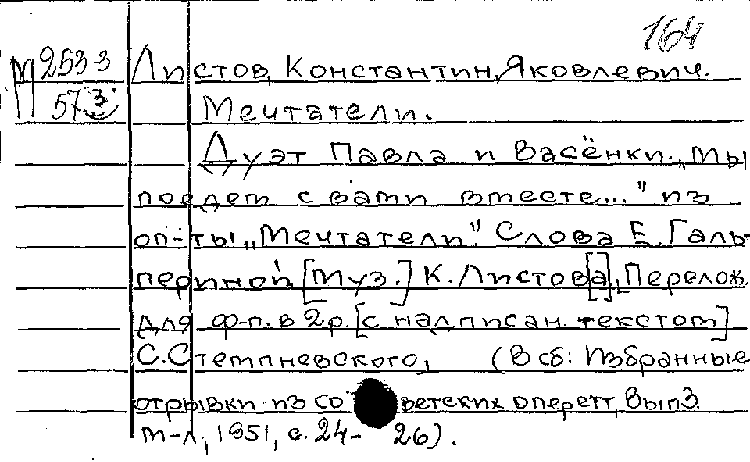 164
М 2533 Листов, Константин Яковлевич.
57 3 Мечтатели.
Дуэт Павла и Васёнки „Мы
поедем с вами вместе...” из
оп-ты „Мечтатели”. Слова Е. Галь-
периной [муз.] К. Листов[а], Перелож.
для ф-п. в 2р. [с надписан. текстом]
С. Стемпневского, (В сб: Избранные
отрывки из советских оперетт, Вып3.
м-л, 1951, с. 24- 26).